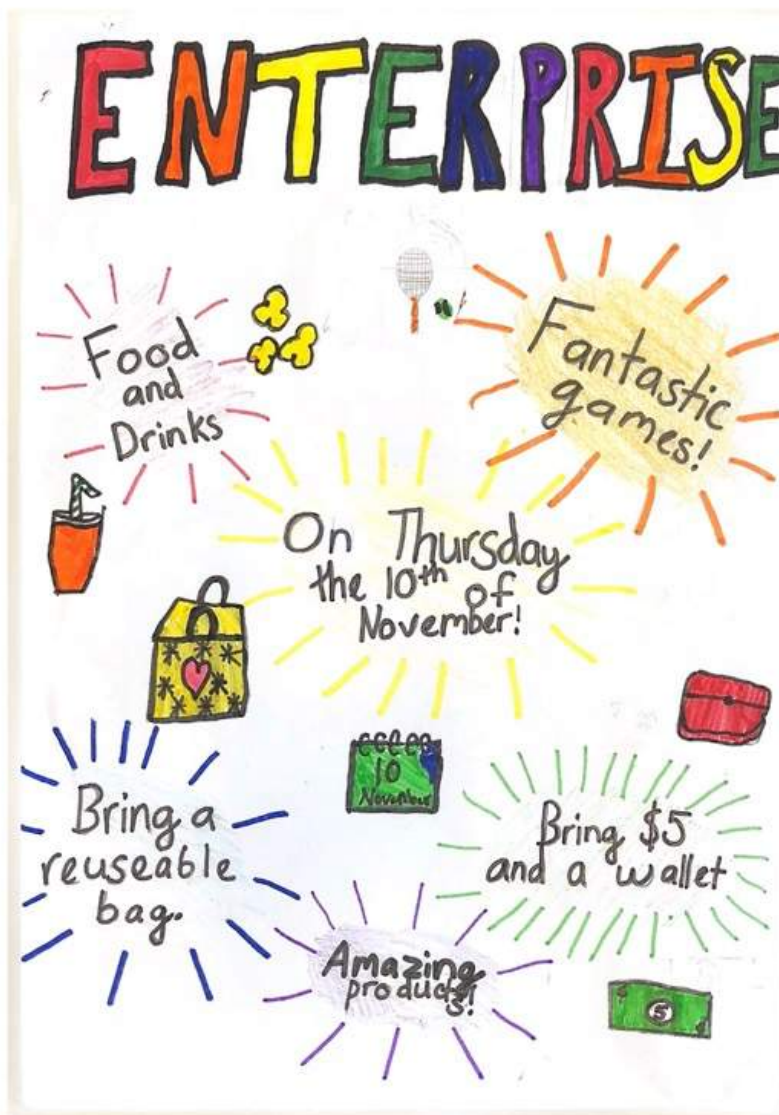 ENTERPRISE
Food
and
Drinks
Fantastic
games!
On Thursday
the 10th of
November!
10
November
Bring a
reuseable
bag.
Bring $5
and a wallet
Amazing
products!
5